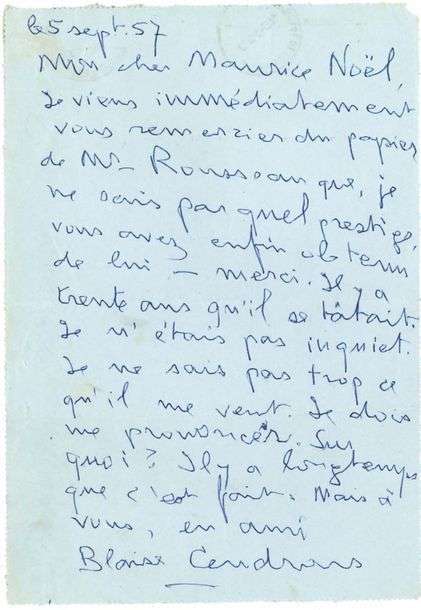 le 5 sept. 57
Mon cher Maurice Noël,
Je viens immédiatement
vous remercier du papier
de Mr Rousseau que, je
ne sais par quel prestige,
vous avez enfin obtenu
de lui — merci. Il y a
trente ans qu'il se tâtait.
Je n'étais pas inquiet.
Je ne sais pas trop ce
qu'il me veut. Je dois
me prononcer. Sur
quoi? Il y a longtemps
que c'est fait. Mais à
vous, en ami
Blaise Cendrars